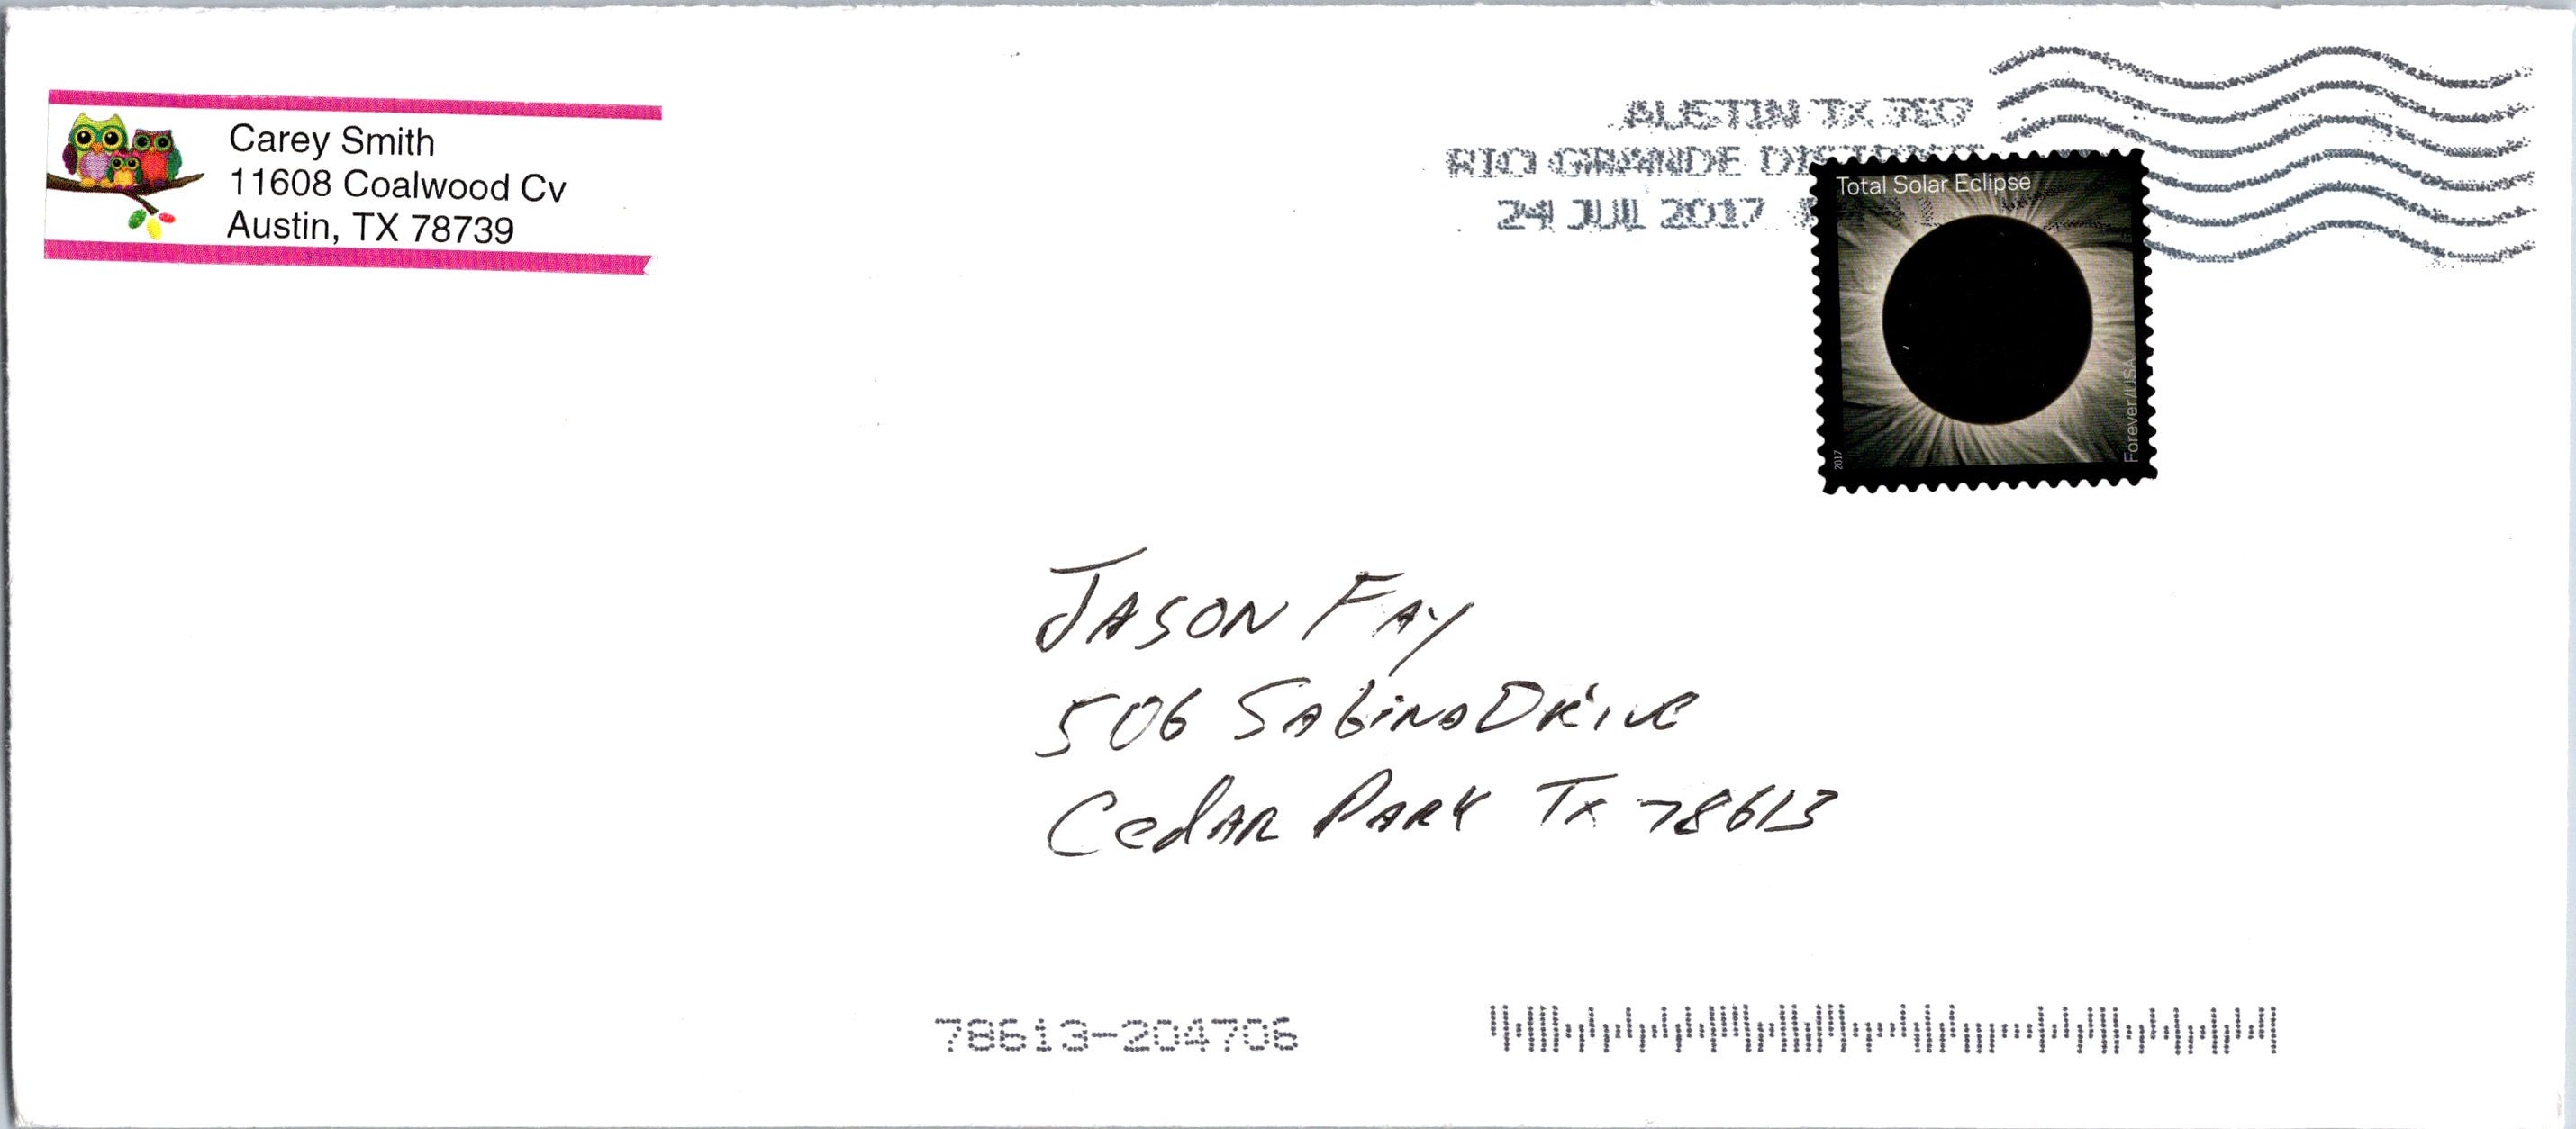 Carey Smith
11608 Coalwood Cv
Austin, TX 78739
AUSTIN TX 787
RIO GRANDE DISTRICT
24 JUL 2017
Total Solar Eclipse
Forever/USA
2017
JASON FAY
506 SABINO DRIVE
CEDAR PARK TX 78613
78613-204706